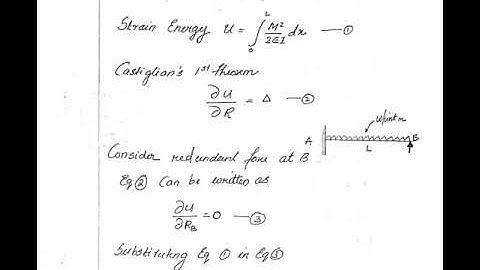 Strain Energy U = ∫₀ᴸ M²/2EI dx — ①
Castiglion's 1st theorem
∂U/∂R = Δ — ②
w/unit m
A B
L
Consider redundant force at B
Eq ② Can be written as
∂U/∂R_B = 0 — ③
Substituting Eq ① in Eq ③